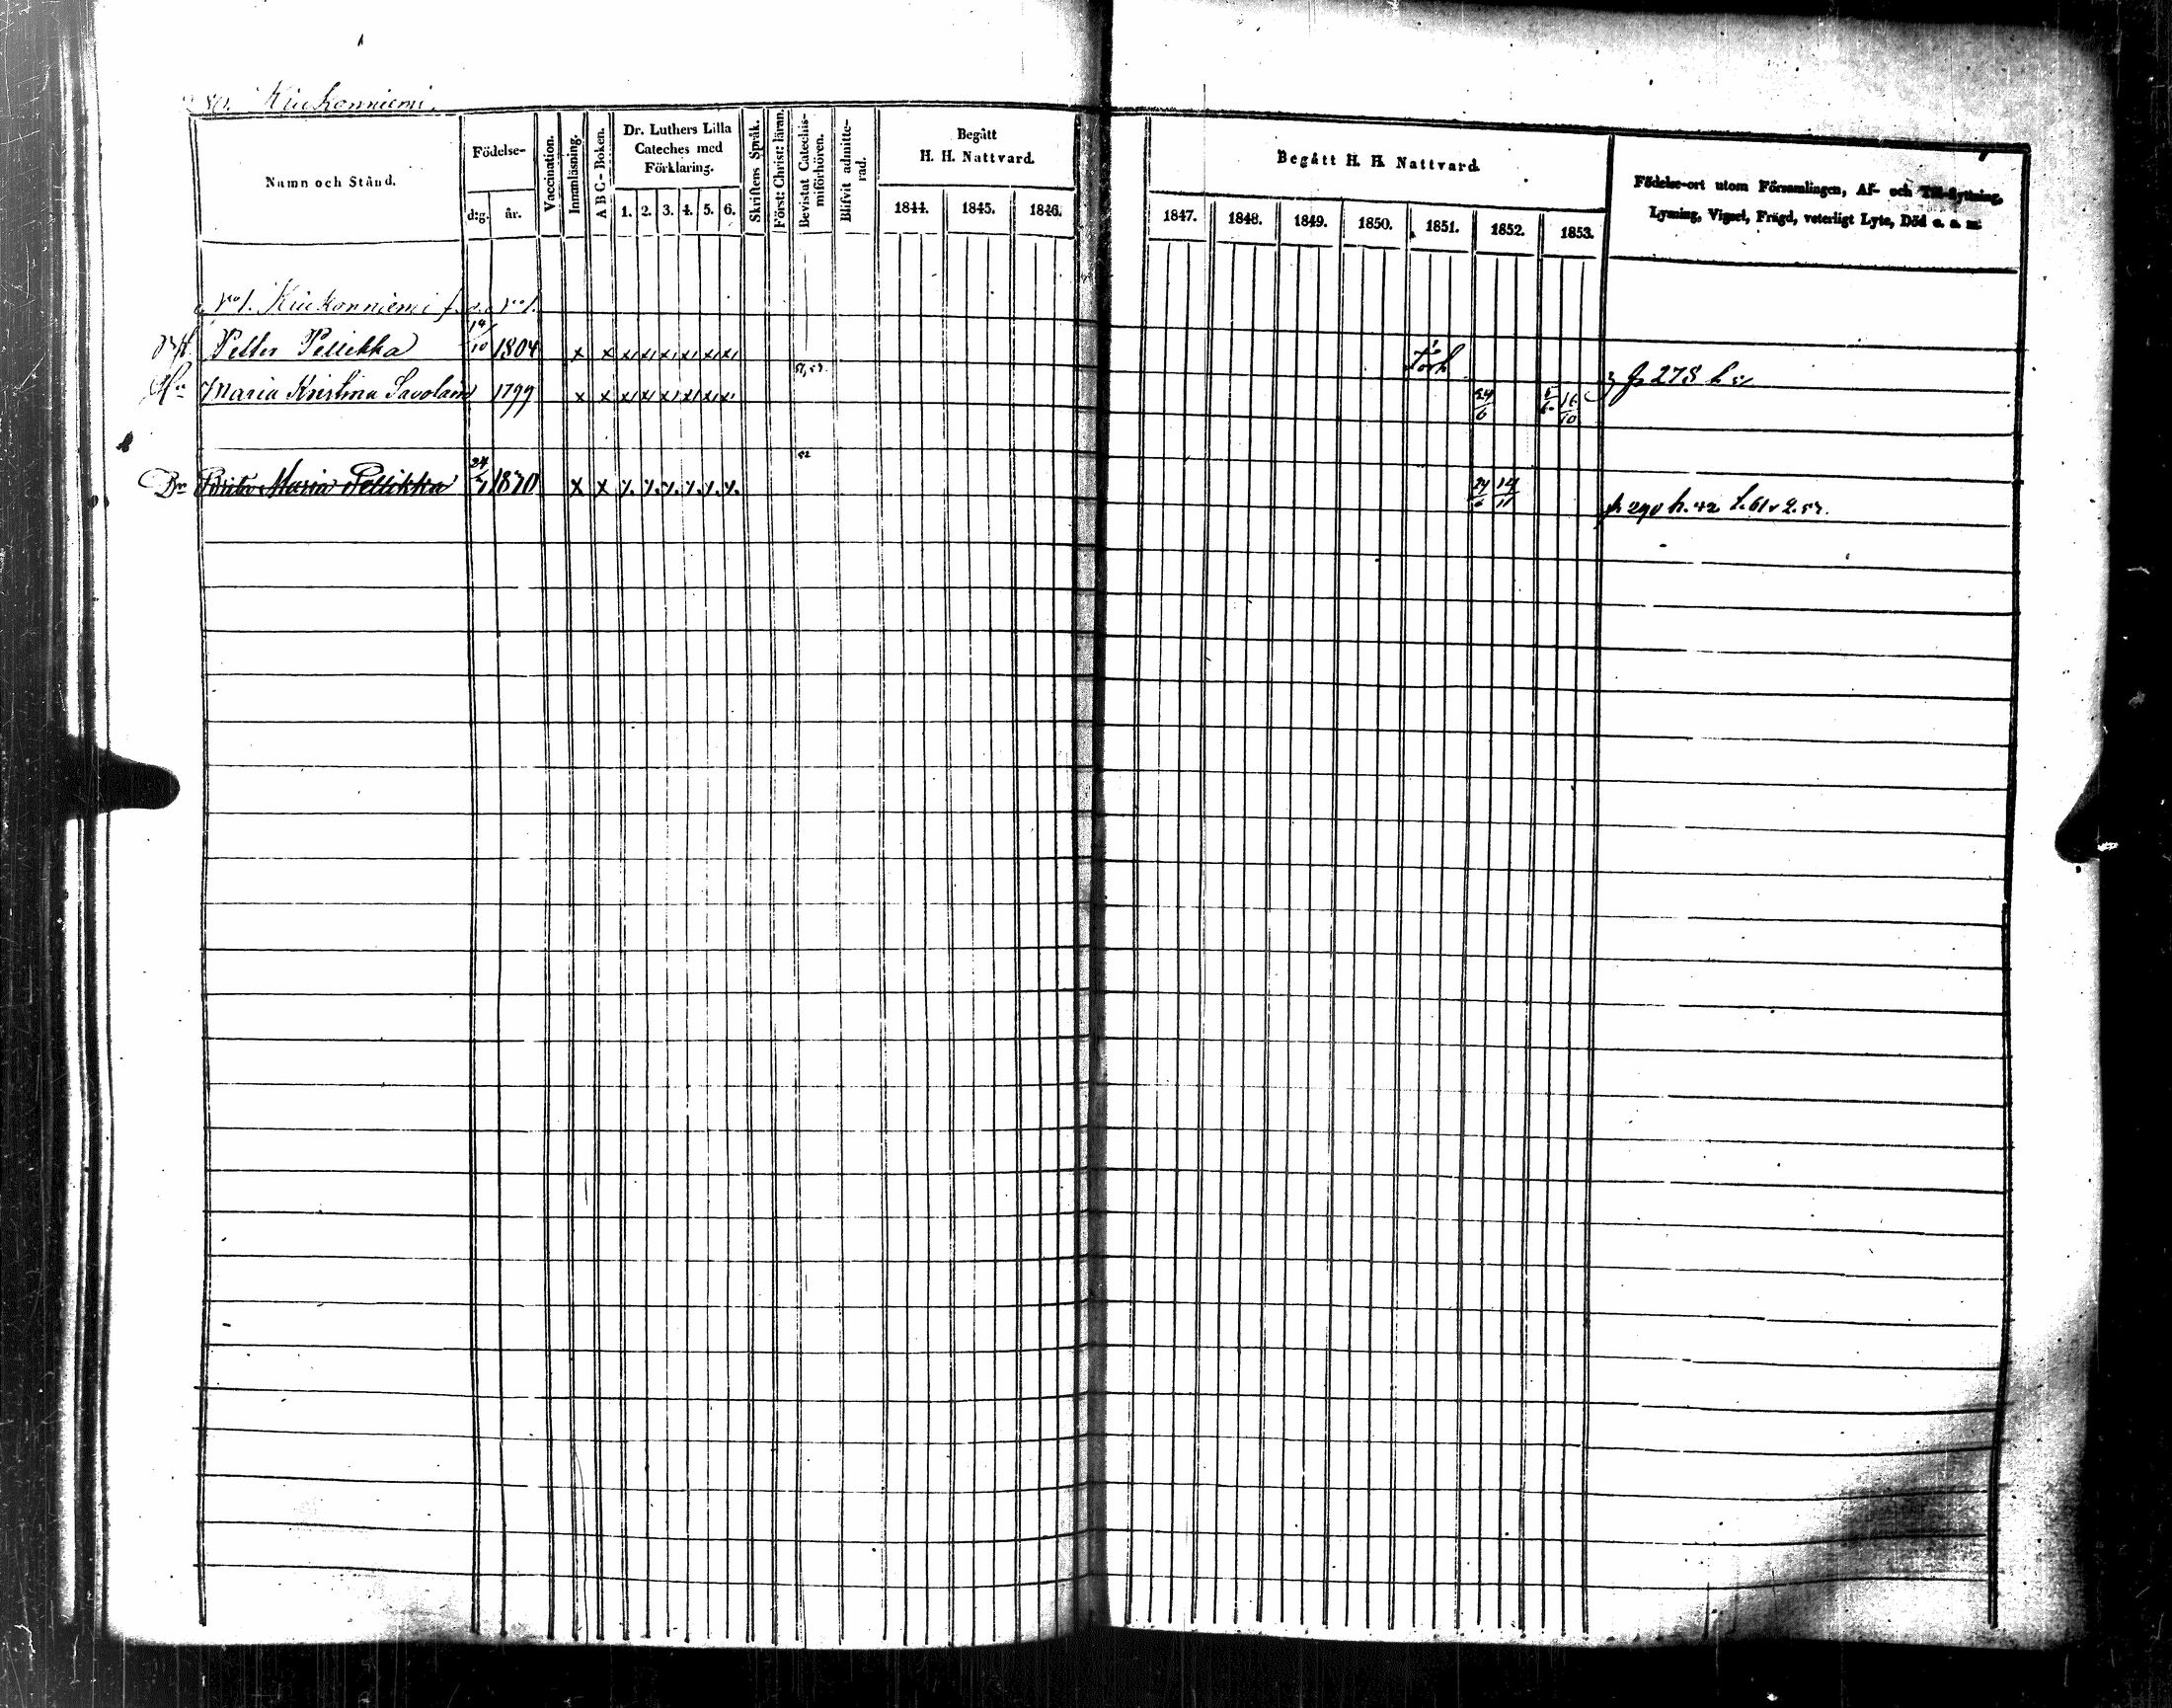 80. Kiukonniemi.
Namn och Stånd.
Födelse-
d:g. år.
Vaccination.
Innanläsning.
A B C-Boken.
Dr. Luthers Lilla
Cateches med
Förklaring.
1. 2. 3. 4. 5. 6.
Skriftens Språk.
Först: Christ: läran.
Bevistat Catechis-
miförhören.
Blifvit admitte-
rad.
Begått
H. H. Nattvard.
1844. 1845. 1846.
Begått H. H. Nattvard.
1847. 1848. 1849. 1850. 1851. 1852. 1853.
Födelse-ort utom Församlingen, Af- och Till-flyttning,
Lysning, Vigsel, Frägd, veterligt Lyte, Död o. s. m.
No 1. Kiukonniemi
Petter Pellikka 14/10 1804 x x x x x x x x
Maria Kristina Savolain 1799 x x x x x x x x 51,53. 24/6 16/10 p 278
Brita Maria Pellikka 1830 x x 52 24/6 14/11 p 290 h. 42